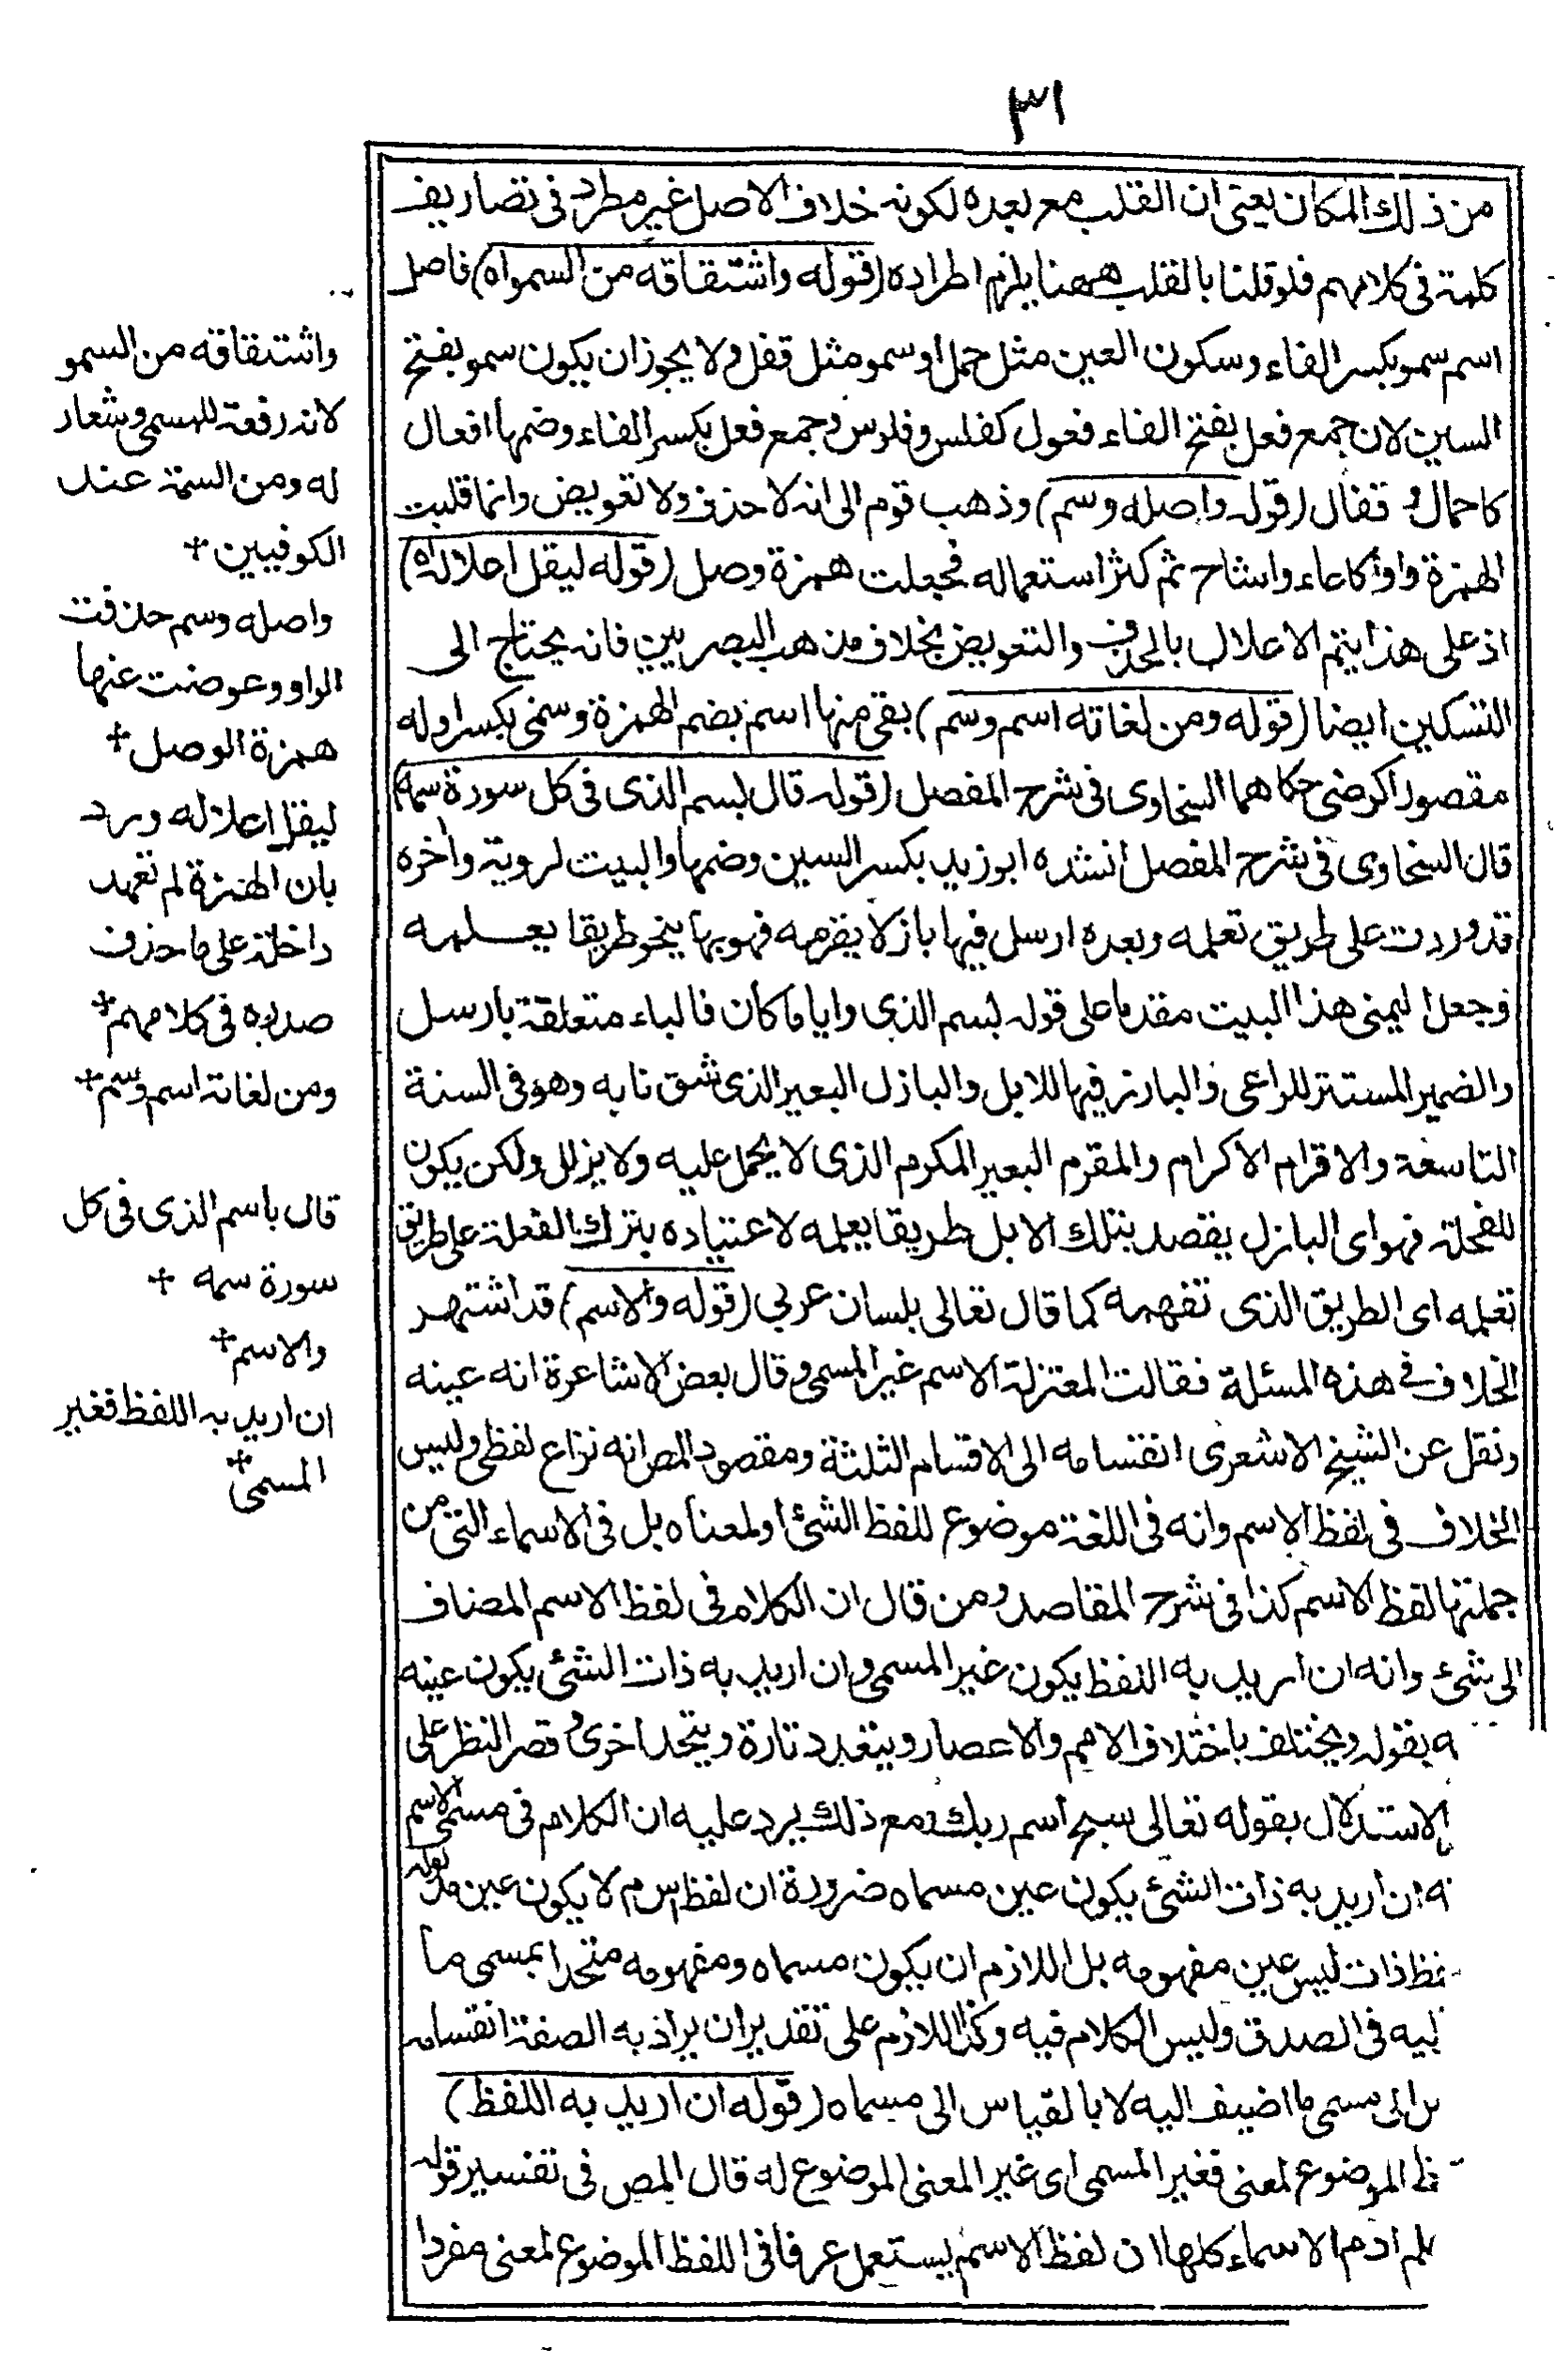 ٣١
من ذلك المكان يعنى ان القلب مع بعده لكونه خلاف الاصل غير مطرد فى تصاريف
كلمة فى كلامهم فلو قلنا بالقلب ههنا يلزم اطراده (قوله واشتقاقه من السمو اه) فاصل
اسم سمو بكسر الفاء وسكون العين مثل حمل او سمو مثل قفل ولا يجوز ان يكون سمو بفتح
السين لان جمع فعل بفتح الفاء فعول كفلس وفلوس وجمع فعل بكسر الفاء وضمها افعال
كاحمال و قفال (قوله واصله وسم) وذهب قوم الى انه لا حذف ولا تعويض وانما قلبت
الهمزة واوا كاعاء واشاح ثم كثر استعماله فجعلت همزة وصل (قوله ليقل اعلاله اه)
اذ على هذا يتم الاعلال بالحذف والتعويض بخلاف مذهب البصريين فانه يحتاج الى
التسكين ايضا (قوله ومن لغاته اسم وسم) بقى منها اسم بضم الهمزة وسمى بكسر اوله
مقصورا كرضى حكاهما السخاوى فى شرح المفصل (قوله قال بسم الذى فى كل سورة سمه)
قال السخاوى فى شرح المفصل انشده ابو زيد بكسر السين وضمها والبيت لروية واخره
قد وردت على طريق تعلمه وبعده ارسل فيها بازلا يقرمه فهو بها ينحو طريقا يعلمه
وجعل اليمنى هذا البيت مقدما على قوله بسم الذى وايا ما كان فالباء متعلقة بارسل
والضمير المستتر للراعى والبارز فيها للابل والبازل البعير الذى شق نابه وهو فى السنة
التاسعة والاقرام الاكرام والمقرم البعير المكرم الذى لا يحمل عليه ولا يزلل ولكن يكون
للفحلة فهو اى البازل يقصد بتلك الابل طريقا يعلمه لاعتياده بترك الفعلة على طريق
تعلمه اى الطريق الذى تفهمه كما قال تعالى بلسان عربي (قوله والاسم) قد اشتهر
الخلاف فى هذه المسئلة فقالت المعتزلة الاسم غير المسمى وقال بعض الاشاعرة انه عينه
ونقل عن الشيخ الاشعرى انقسامه الى الاقسام الثلثة ومقصود المص انه نزاع لفظى وليس
الخلاف فى لفظ الاسم وانه فى اللغة موضوع للفظ الشئ او لمعناه بل فى الاسماء التى من
جملتها لفظ الاسم كذا فى شرح المقاصد ومن قال ان الكلام فى لفظ الاسم المضاف
الى شئ وانه ان اريد به اللفظ يكون غير المسمى وان اريد به ذات الشئ يكون عينه
ه بقوله ويختلف باختلاف الامم والاعصار ويتعدد تارة ويتحد اخرى و قصر النظر على
الاستدلال بقوله تعالى سبح اسم ربك ومع ذلك يرد عليه ان الكلام فى مسمى الاسم
نه ان اريد به ذات الشئ يكون عين مسماه ضرورة ان لفظ اس م لا يكون عين مدلوله
فظ ذات ليس عين مفهومه بل اللازم ان يكون مسماه ومفهومه متحدا بمسمى ما
ليه فى الصدق وليس الكلام فيه وكذا اللازم على تقدير ان يراد به الصفة انقسامه
س الى مسمى ما اضيف اليه لا بالقياس الى مسماه (قوله ان اريد به اللفظ)
ظ الموضوع لمعنى فغير المسمى اى غير المعنى الموضوع له قال المص فى تفسير قوله
علم ادم الاسماء كلها ان لفظ الاسم يستعمل عرفا فى اللفظ الموضوع لمعنى مفردا
واشتقاقه من السمو
لانه رفعة للمسمى وشعار
له ومن السمة عند
الكوفيين
واصله وسم حذفت
الواو وعوضت عنها
همزة الوصل
ليقل اعلاله ورد
بان الهمزة لم تعهد
داخلة على ما حذف
صدره فى كلامهم
ومن لغاته اسم وسم
قال باسم الذى فى كل
سورة سمه
والاسم
ان اريد به اللفظ فغير
المسمى